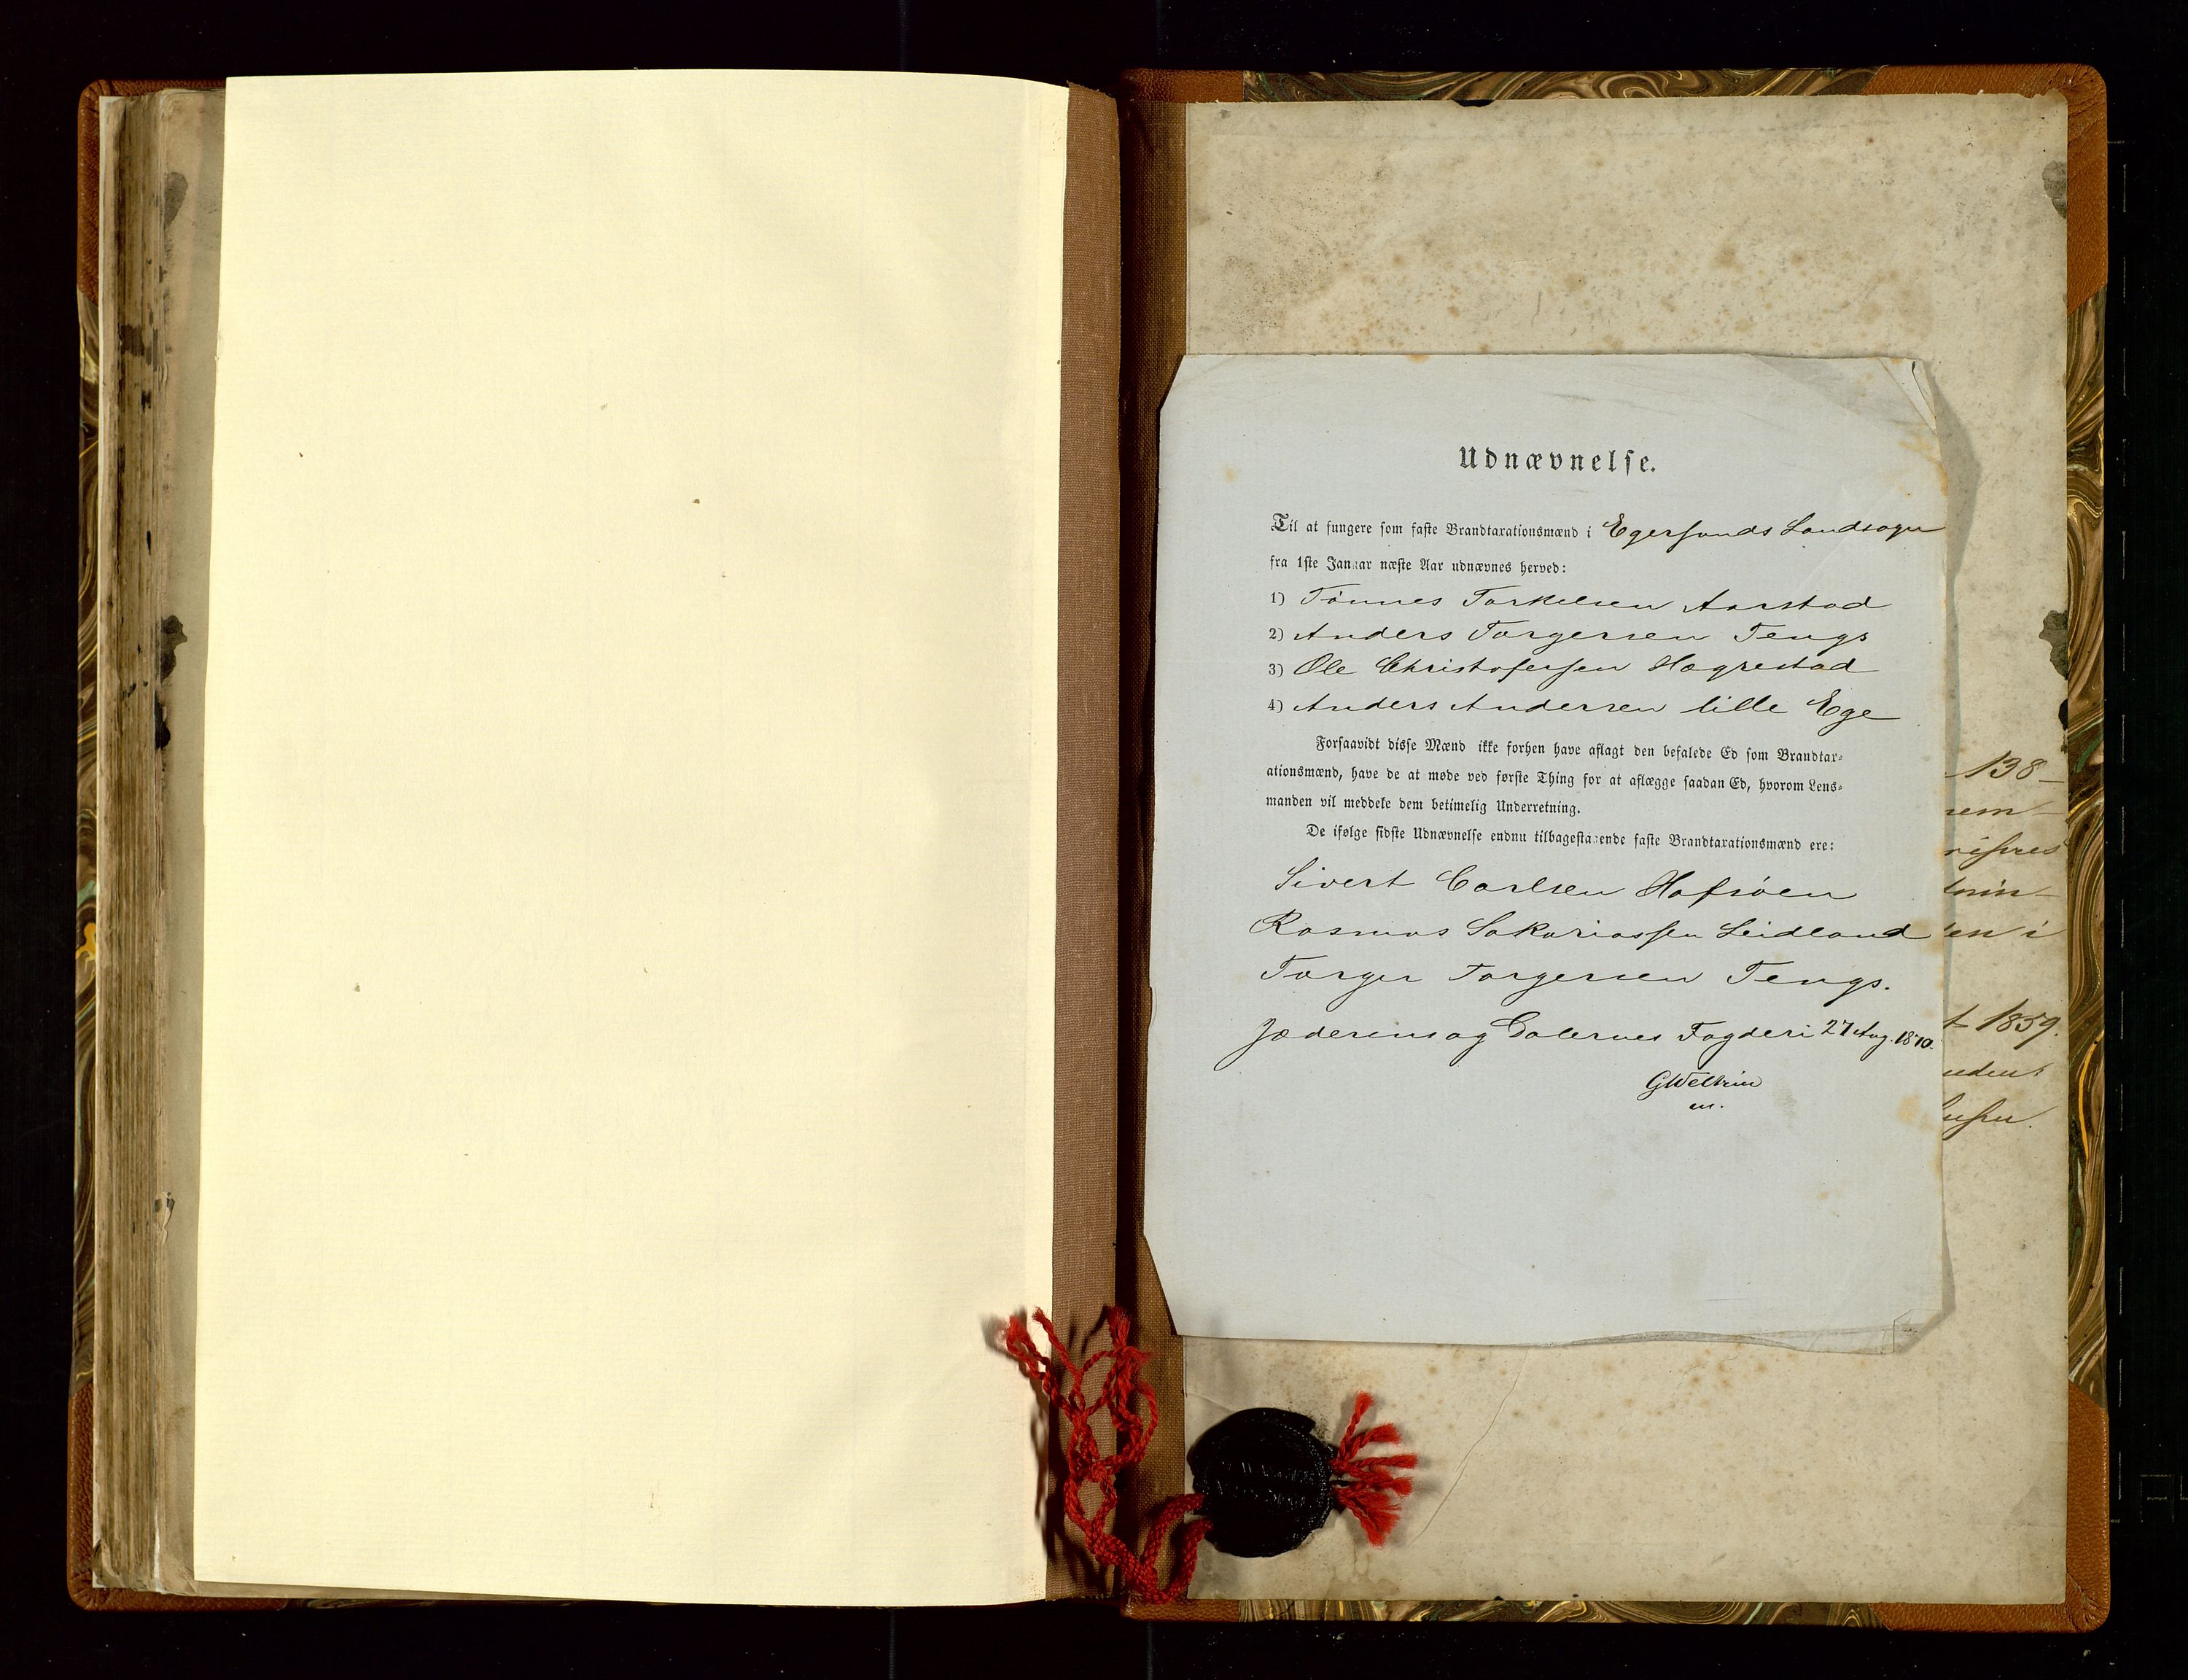 Udnævnelse.
Til at fungere som faste Brandtaxationsmænd i Egersunds Landsogn
fra 1ste Januar næste Aar udnævnes herved:
1) Tönnes Torkelsen Aarstad
2) Anders Torgersen Tengs
3) Ole Christofersen Hægrestad
4) Anders Andersen lille Ege
Forsaavidt disse Mænd ikke forhen have aflagt den befalede Ed som Brandtax-
ationsmænd, have de at møde ved første Thing for at aflægge saadan Ed, hvorom Lens-
manden vil meddele dem betimelig Underretning.
De ifølge sidste Udnævnelse endnu tilbagestaaende faste Brandtaxationsmænd ere:
Sivert Carlsen Hafsöen
Rasmus Sakariassen Leidland
Torger Torgersen Tengs.
Jæderens og Dalernes Fogderi 27 Aug. 1870.
138-
en i
1859.